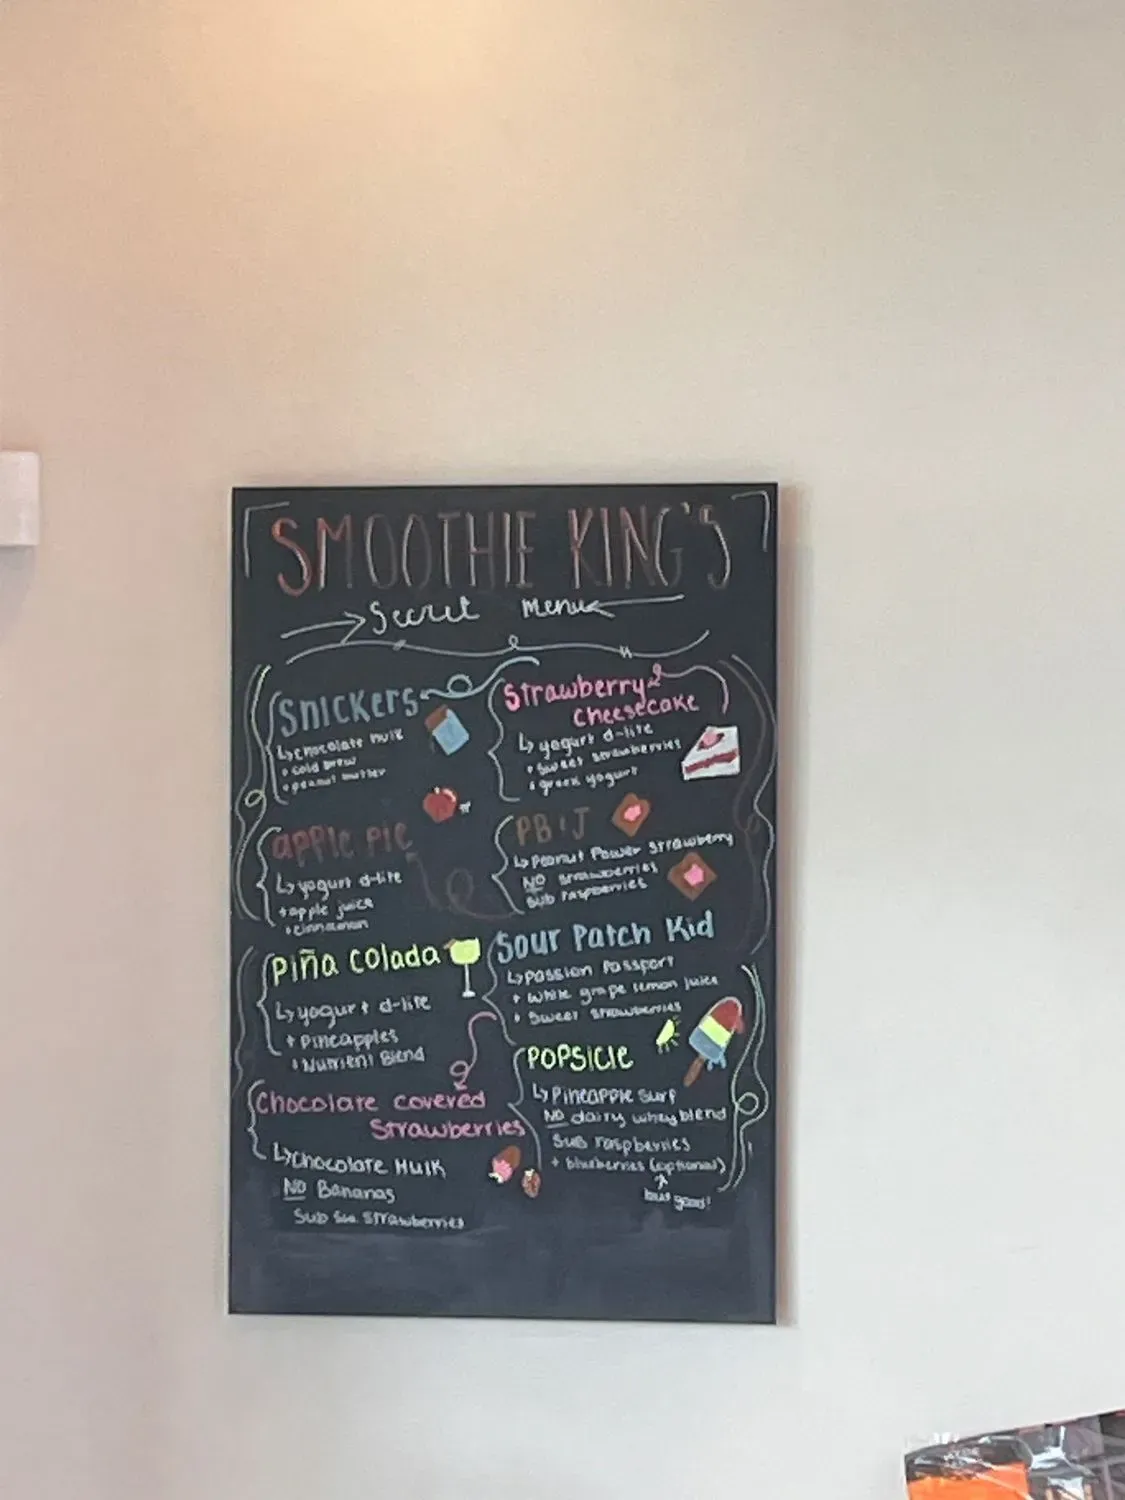 SMOOTHIE KING'S
Secret Menu
Snickers
↳ Chocolate Hulk
+ cold brew
+ peanut butter
apple pie
↳ yogurt d-lite
+ apple juice
+ cinnamon
Piña Colada
↳ yogurt d-lite
+ Pineapples
+ Nutrient Blend
Chocolate covered
Strawberries
↳ Chocolate Hulk
NO Bananas
Sub strawberries
Strawberry
Cheesecake
↳ yogurt d-lite
+ sweet strawberries
+ greek yogurt
PB+J
↳ Peanut Power Strawberry
NO strawberries
sub raspberries
Sour Patch Kid
↳ Passion Passport
+ White grape lemon juice
+ Sweet strawberries
POPSICLE
↳ Pineapple Surf
NO dairy whey blend
Sub raspberries
+ blueberries (optional)
but good!